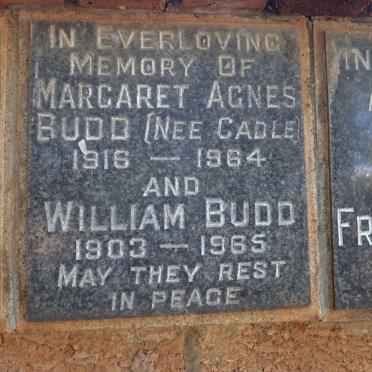 IN EVERLOVING
MEMORY OF
MARGARET AGNES
BUDD (NEE CADLE)
1916 — 1964
AND
WILLIAM BUDD
1903 — 1965
MAY THEY REST
IN PEACE
IN
FR